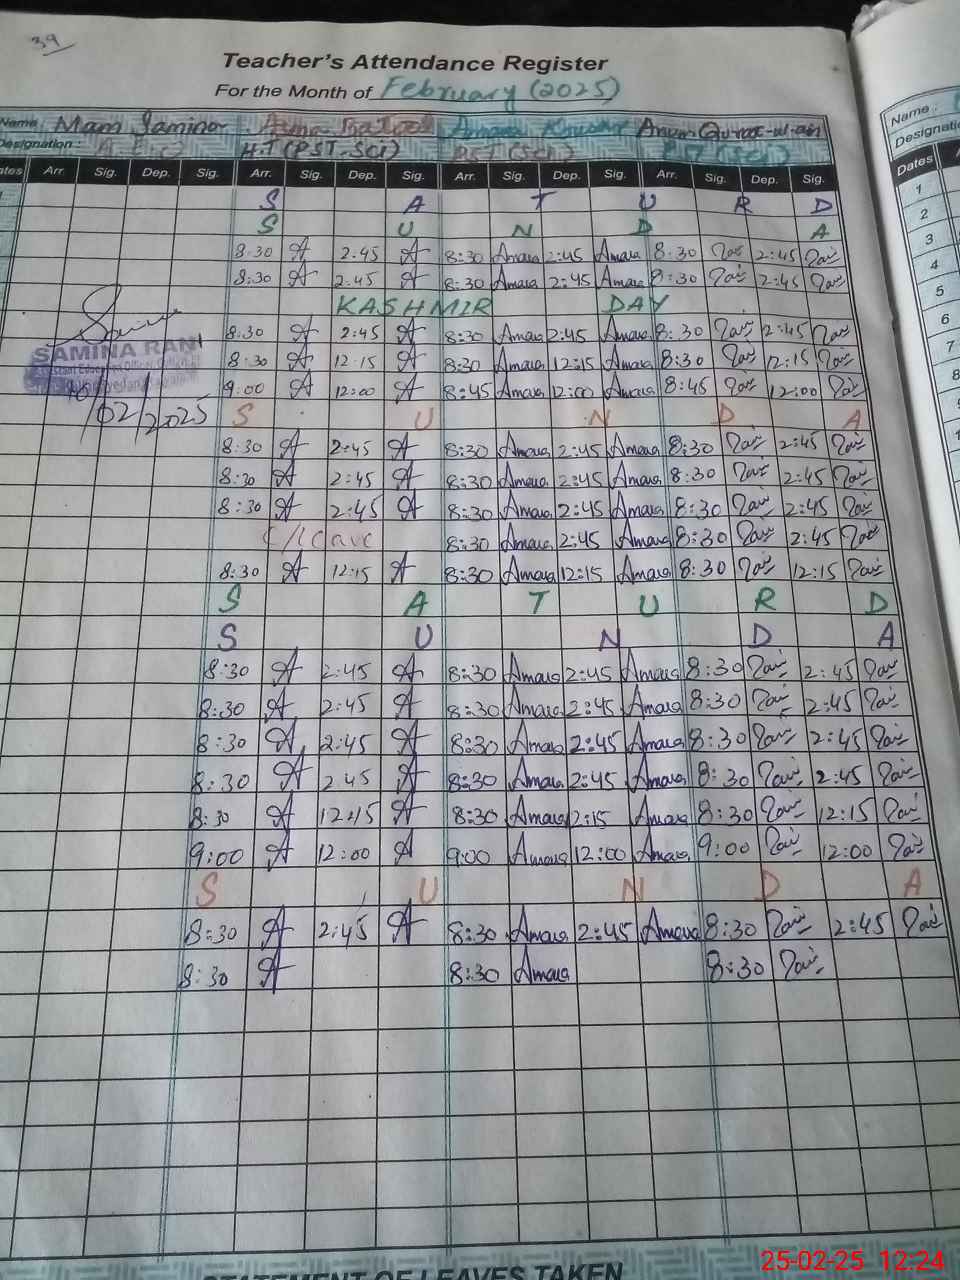 39
Teacher's Attendance Register
For the Month of February (2025)
Name: Mam Samina Asma Batool Amara Anum Qurat-ul-ain
Designation: A.E.O H.T (PST-Sci) PST (Sci) PST (Sci)
Dates Arr. Sig. Dep. Sig. Arr. Sig. Dep. Sig. Arr. Sig. Dep. Sig. Arr. Sig. Dep. Sig.
S A T U R D
S U N D A
8:30 A 2:45 A 8:30 Amara 2:45 Amara 8:30 2:45
8:30 A 2:45 A 8:30 Amara 2:45 Amara 8:30 2:45
KASHMIR DAY
8:30 A 2:45 A 8:30 Amara 2:45 Amara 8:30 2:45
8:30 A 12:15 A 8:30 Amara 12:15 Amara 8:30 12:15
9:00 A 12:00 A 8:45 Amara 12:00 Amara 8:45 12:00
SAMINA RANI
10/02/2025
S U N D A
8:30 A 2:45 A 8:30 Amara 2:45 Amara 8:30 2:45
8:30 A 2:45 A 8:30 Amara 2:45 Amara 8:30 2:45
8:30 A 2:45 A 8:30 Amara 2:45 Amara 8:30 2:45
C/leave 8:30 Amara 2:45 Amara 8:30 2:45
8:30 A 12:15 A 8:30 Amara 12:15 Amara 8:30 12:15
S A T U R D
S U N D A
8:30 A 2:45 A 8:30 Amara 2:45 Amara 8:30 2:45
8:30 A 2:45 A 8:30 Amara 2:45 Amara 8:30 2:45
8:30 A 2:45 A 8:30 Amara 2:45 Amara 8:30 2:45
8:30 A 2.45 A 8:30 Amara 2:45 Amara 8:30 2:45
8:30 A 12:15 A 8:30 Amara 12:15 Amara 8:30 12:15
9:00 A 12:00 A 9:00 Amara 12:00 Amara 9:00 12:00
S U N D A
8:30 A 2:45 A 8:30 Amara 2:45 Amara 8:30 2:45
8:30 A 8:30 Amara 8:30
STATEMENT OF LEAVES TAKEN
Name:
Designation
Dates
1
2
3
4
5
6
7
8
9
10
11
25-02-25 12:24